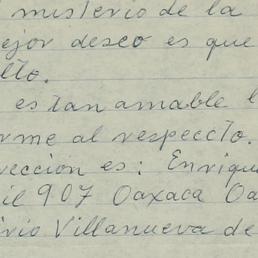 misterio de la
ejor deseo es que
lto.
es tan amable l
rme al respeccto.
rección es: Enriqu
il 907 Oaxaca Oa
rio Villanueva de